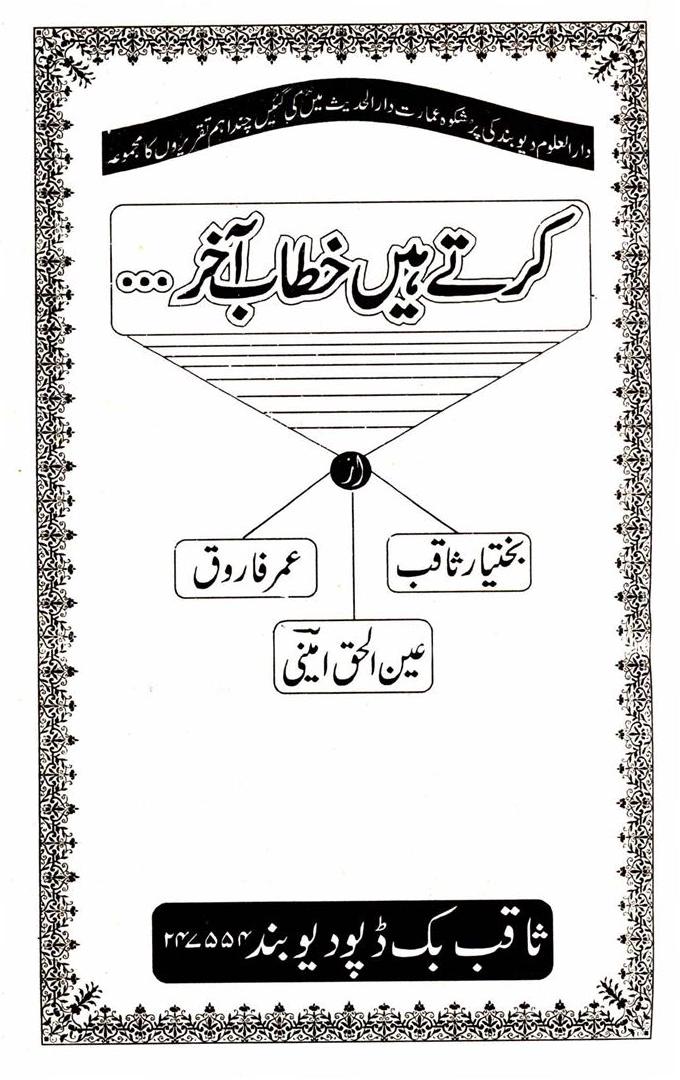 دارالعلوم دیوبند کی پرشکوہ عمارت دارالحدیث میں کی گئیں چند اہم تقریروں کا مجموعہ
کرتے ہیں خطاب آخر ...
از
بختیار ثاقب
عمر فاروق
عین الحق امینی
ثاقب بک ڈپو دیوبند ۲۴۷۵۵۴